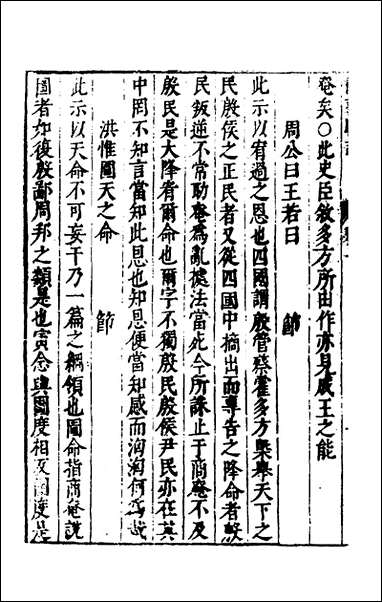 奄矣○此史臣敘多方所由作亦見成王之能
周公曰王若曰 節
此示以宥過之恩也四國謂殷管蔡霍多方槩舉天下之
民殷侯之正民者又從四國中摘出而專告之降命者殺
民叛逆不常助奄為亂據法當死今所誅止于商奄不及
殷民是大降宥爾命也爾字不獨殷民殷侯尹民亦在其
中罔不知言當知此恩也知恩便當知感而洶洶何為哉
洪惟圖天之命 節
此示以天命不可妄干乃一篇之綱領也圖命指商奄說
圖者如復殷鄙周邦之類是也寅念與圖度相反圖度是